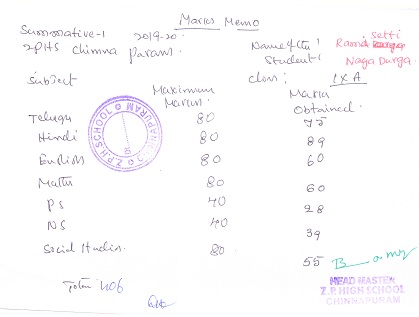 Marks Memo
Summative-1 2019-20.
ZPHS Chinna puram.
Name of the Student: Rami setti Naga Durga
class: IX A
Subject Maximum Marks Marks Obtained.
Telugu 80 75
Hindi 80 89
English 80 60
Maths 80 60
PS 40 28
NS 40 39
Social Studies. 80 55
Total 406
HEAD MASTER
Z.P. HIGH SCHOOL
CHINNAPURAM